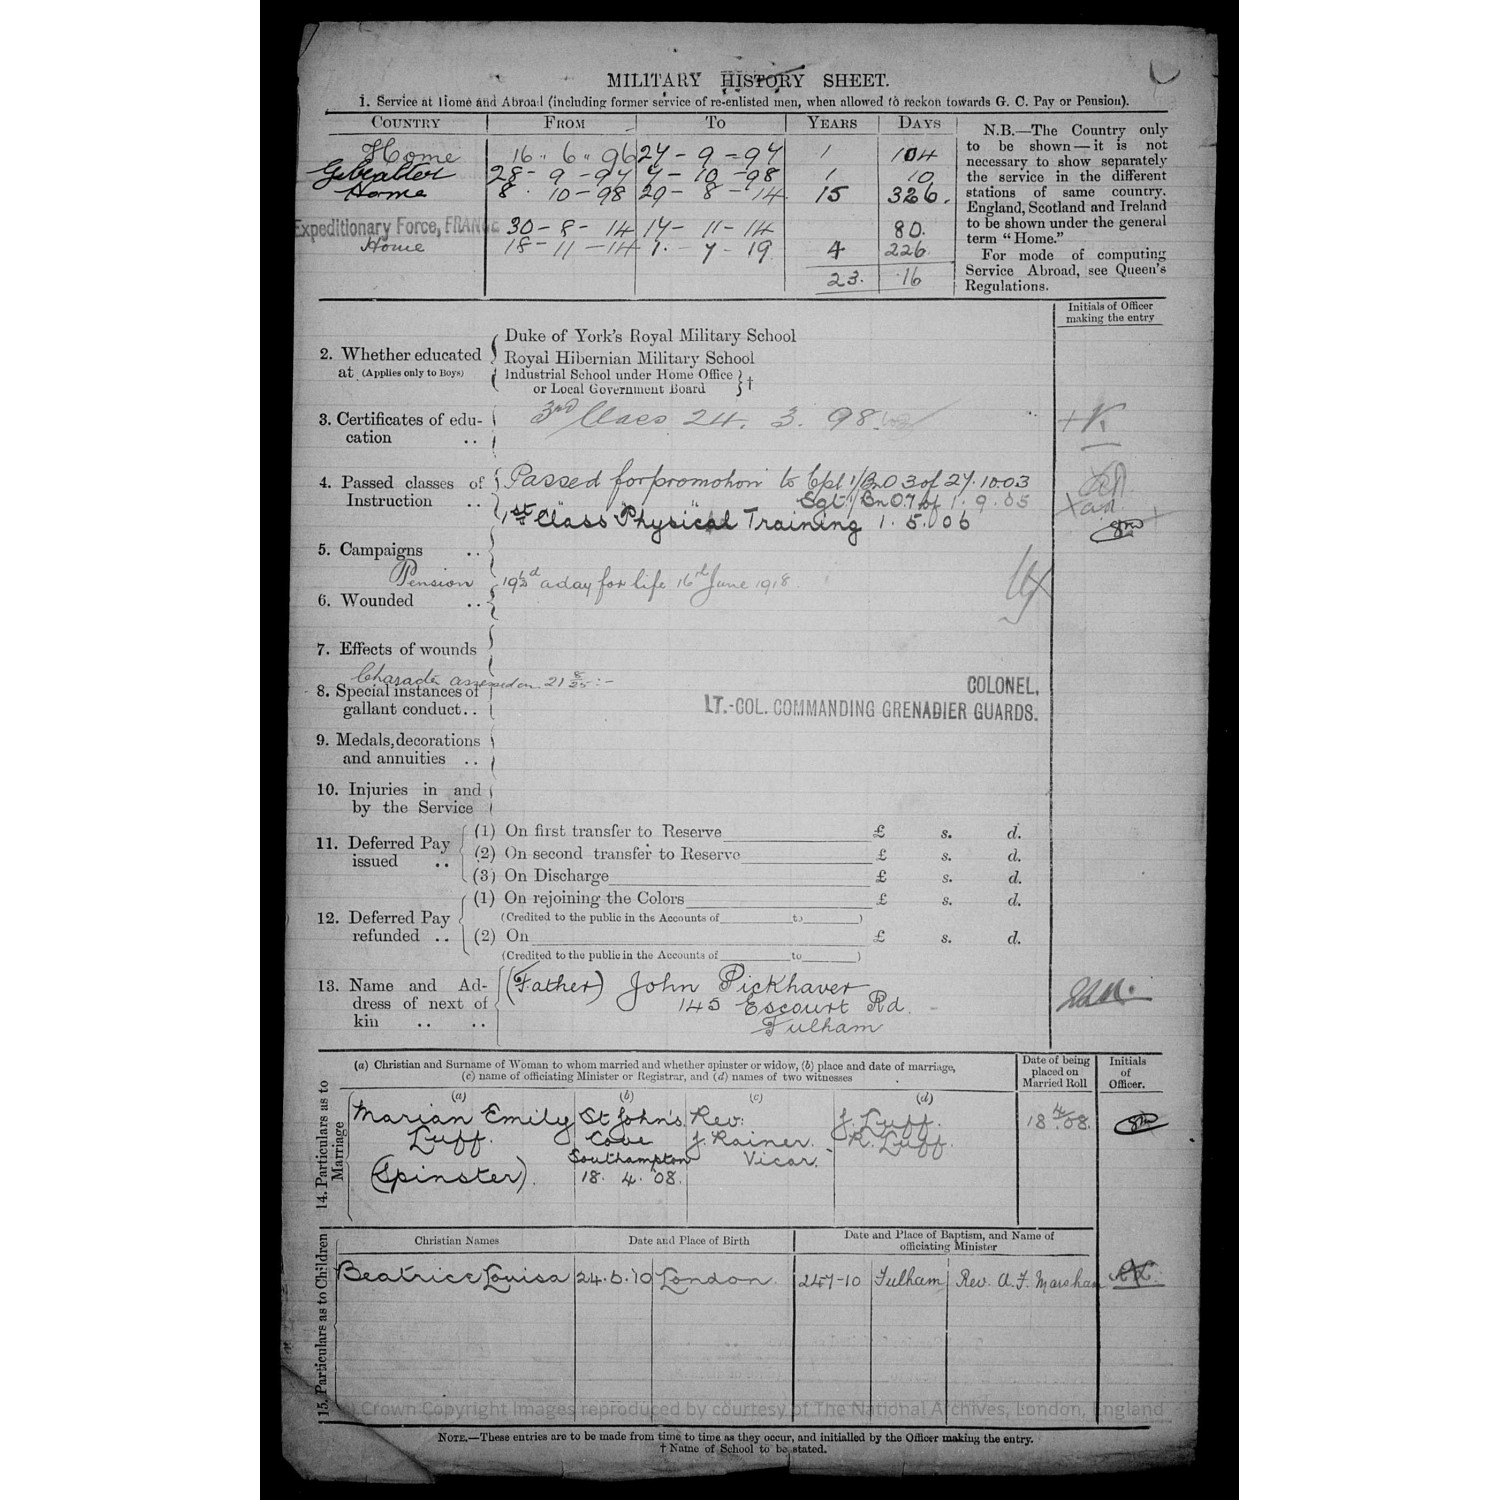 MILITARY HISTORY SHEET.
1. Service at Home and Abroad (including former service of re-enlisted men, when allowed to reckon towards G. C. Pay or Pension).
COUNTRY FROM TO YEARS DAYS
Home 16 " 6 " 96 27 - 9 - 97 1 104
28 - 9 - 97 7 - 10 - 98 1 10
Home 8 10 - 98 29 - 8 - 14 15 326.
Expeditionary Force, FRANCE 30 - 8 - 14 14 - 11 - 14 80.
Home 18 - 11 - 14 1. - 7 - 19 4 226
23. 16
N.B.—The Country only
to be shown—it is not
necessary to show separately
the service in the different
stations of same country.
England, Scotland and Ireland
to be shown under the general
term "Home."
For mode of computing
Service Abroad, see Queen's
Regulations.
Initials of Officer
making the entry
2. Whether educated
at (Applies only to Boys)
Duke of York's Royal Military School
Royal Hibernian Military School
Industrial School under Home Office
or Local Government Board †
3. Certificates of edu-
cation ..
3rd Class 24. 3. 98.
4. Passed classes of
Instruction ..
Passed for promotion to Cpl 1/Bn O 3 of 27.10.03
Sgt 1/Bn O 7 of 1.9.05
1st Class Physical Training 1.5.06
5. Campaigns ..
Pension 19½d a day for life 16th June 1918.
6. Wounded ..
7. Effects of wounds
Character assessed on 21 8/25 :-
8. Special instances of
gallant conduct..
COLONEL,
LT.-COL. COMMANDING GRENADIER GUARDS.
9. Medals, decorations
and annuities ..
10. Injuries in and
by the Service
11. Deferred Pay
issued ..
(1) On first transfer to Reserve £ s. d.
(2) On second transfer to Reserve £ s. d.
(3) On Discharge £ s. d.
12. Deferred Pay
refunded ..
(1) On rejoining the Colors £ s. d.
(Credited to the public in the Accounts of to )
(2) On £ s. d.
(Credited to the public in the Accounts of to )
13. Name and Ad-
dress of next of
kin .. ..
(Father) John Pickhaver
145 Escourt Rd.
Fulham
14. Particulars as to
Marriage
(a) Christian and Surname of Woman to whom married and whether spinster or widow, (b) place and date of marriage,
(c) name of officiating Minister or Registrar, and (d) names of two witnesses
Date of being
placed on
Married Roll
Initials
of
Officer.
(a) (b) (c) (d)
Marian Emily St John's Rev: J. Luff. 18 4/08.
Luff. Cove J. Rainer. R. Luff.
(Spinster). Southampton Vicar.
18. 4. 08.
15. Particulars as to Children
Christian Names Date and Place of Birth Date and Place of Baptism, and Name of
officiating Minister
Beatrice Louisa 24.6.10 London 24-7-10 Fulham Rev. A. F. Marsham
Crown Copyright Images reproduced by courtesy of The National Archives, London, England
NOTE.—These entries are to be made from time to time as they occur, and initialled by the Officer making the entry.
† Name of School to be stated.